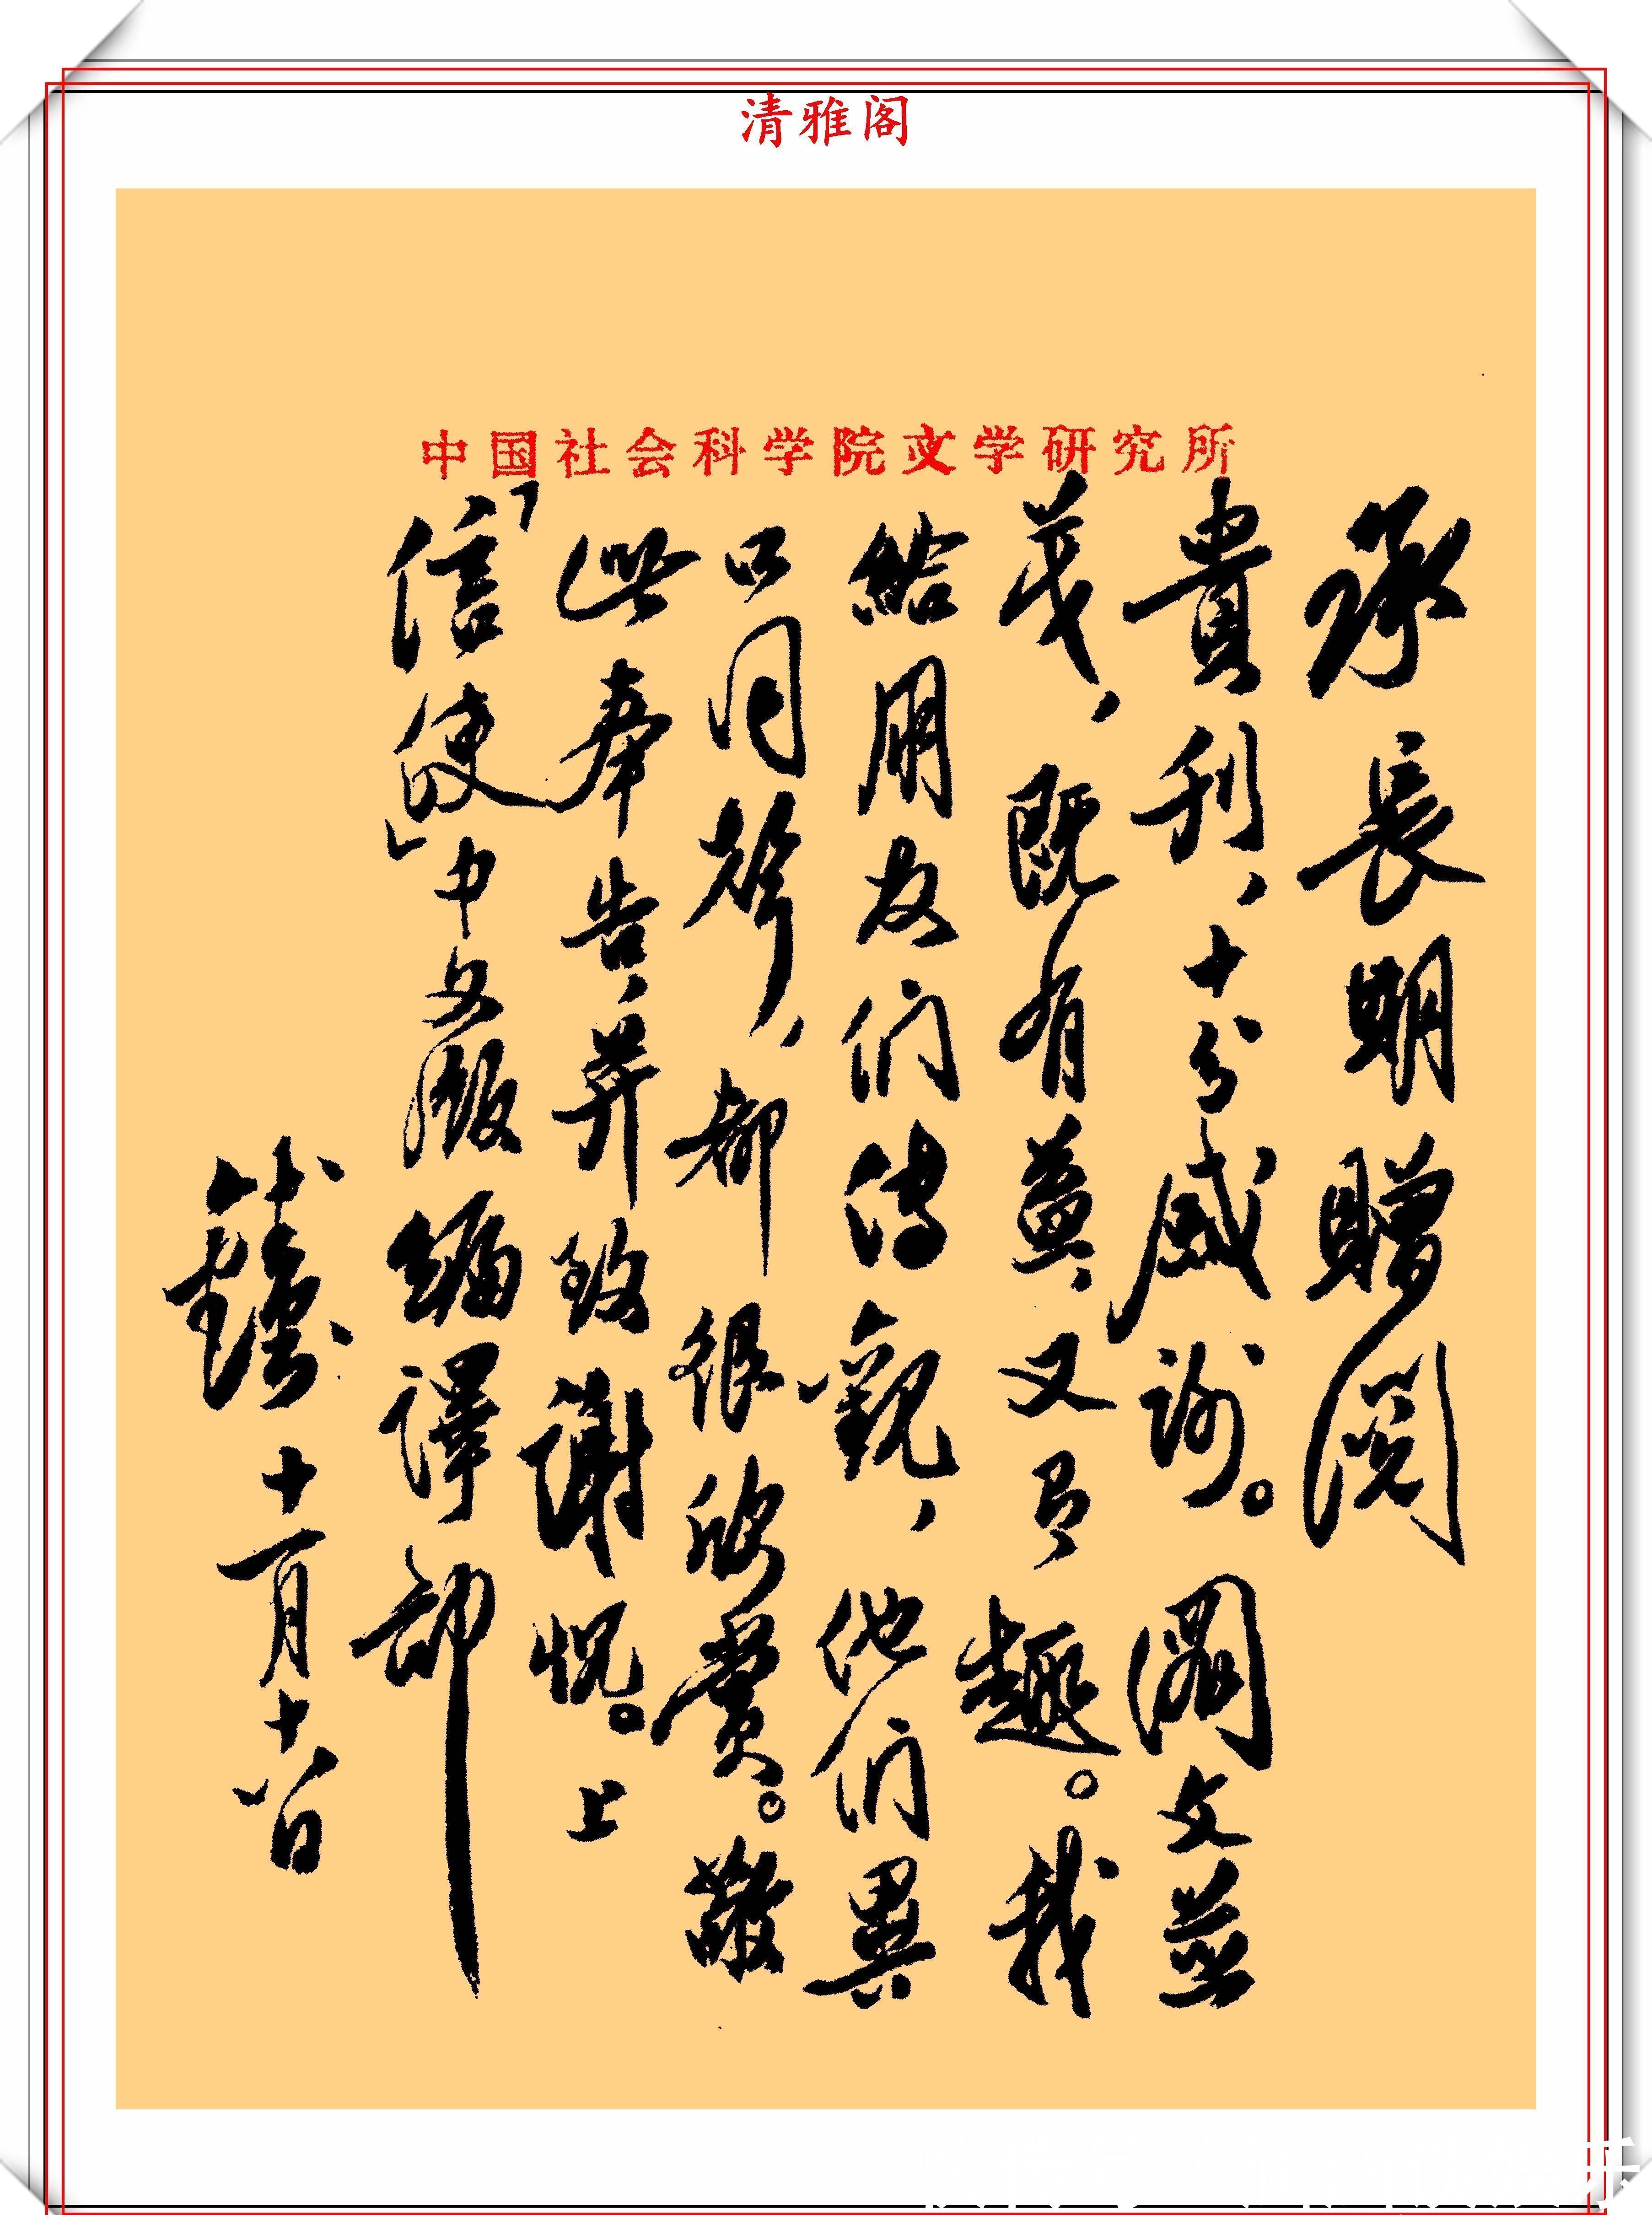 清雅阁
中国社会科学院文学研究所
承長期贈閱
貴刊，十分感謝。圖文並
茂，既有益，又有趣。我
給朋友們傳觀，他們異
口同聲，都很欣賞。敬
此奉告，并致謝忱。上
「信使」中文版編譯部
十一月十八日